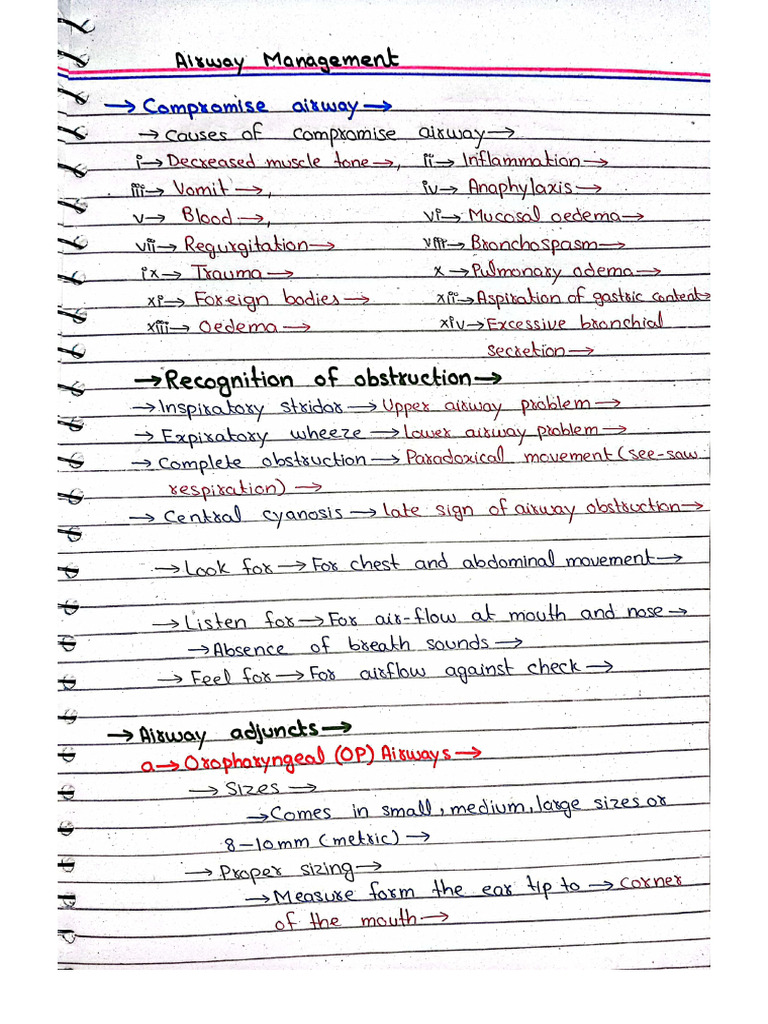 Airway Management
→ Compromise airway →
→ Causes of compromise airway →
i → Decreased muscle tone →, ii → Inflammation →
iii → Vomit →, iv → Anaphylaxis →
v → Blood →, vi → Mucosal oedema →
vii → Regurgitation → viii → Bronchospasm →
ix → Trauma → x → Pulmonary odema →
xi → Foreign bodies → xii → Aspiration of gastric content →
xiii → Oedema → xiv → Excessive bronchial
secretion →
→ Recognition of obstruction →
→ Inspiratory stridor → Upper airway problem →
→ Expiratory wheeze → Lower airway problem →
→ Complete obstruction → Paradoxical movement (see-saw
respiration) →
→ Central cyanosis → late sign of airway obstruction →
→ Look for → For chest and abdominal movement →
→ Listen for → For air-flow at mouth and nose →
→ Absence of breath sounds →
→ Feel for → For airflow against check →
→ Airway adjuncts →
a → Oropharyngeal (OP) Airways →
→ Sizes →
→ Comes in small, medium, large sizes or
8-10mm (metric) →
→ Proper sizing →
→ Measure form the ear tip to → corner
of the mouth →